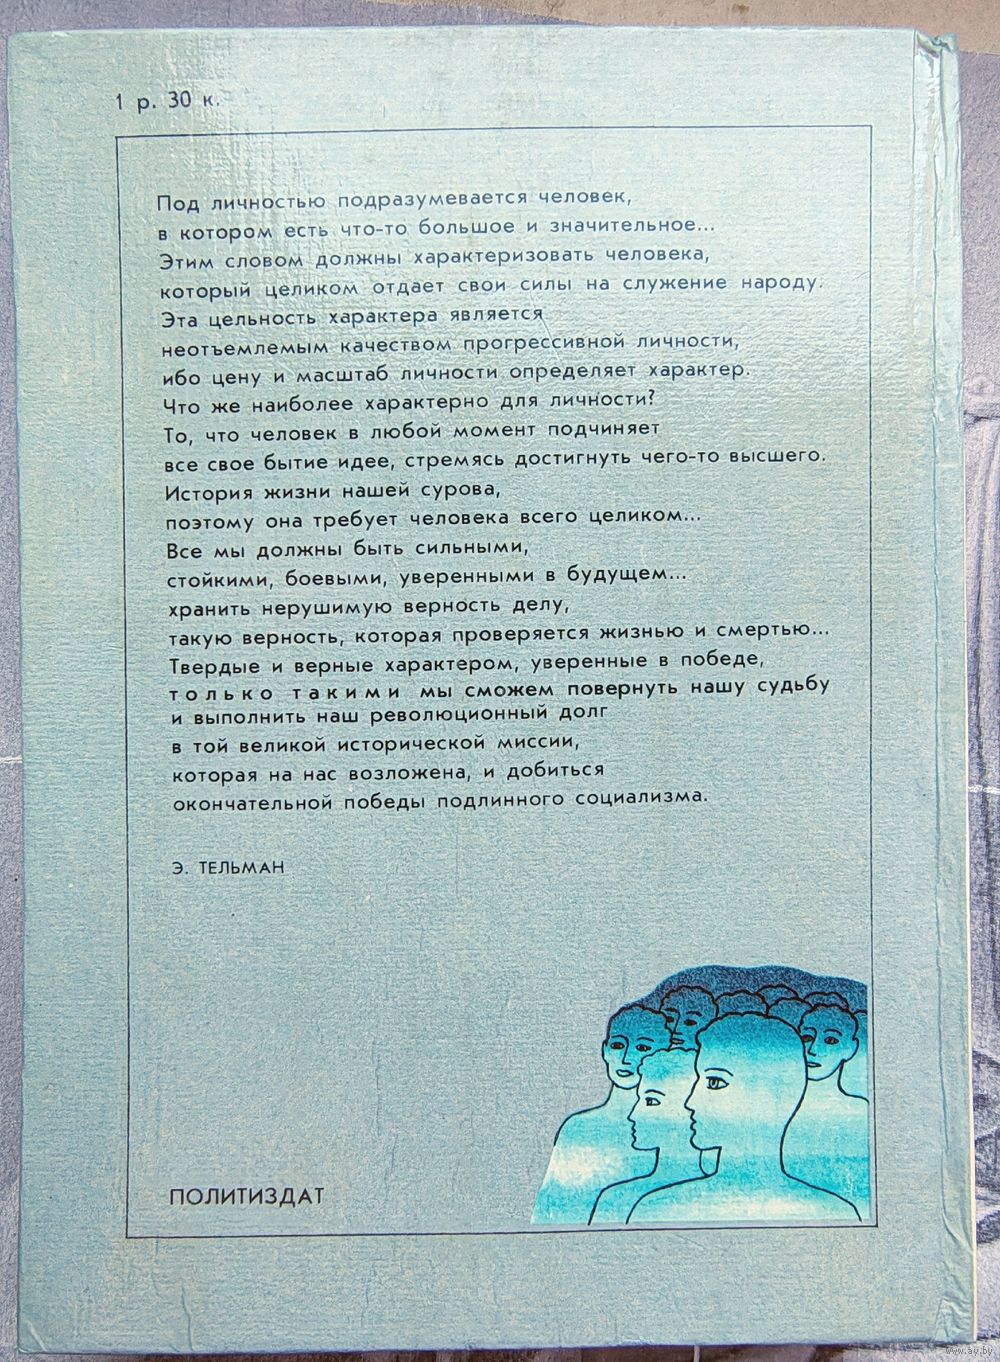 1 р. 30 к.
Под личностью подразумевается человек,
в котором есть что-то большое и значительное...
Этим словом должны характеризовать человека,
который целиком отдает свои силы на служение народу.
Эта цельность характера является
неотъемлемым качеством прогрессивной личности,
ибо цену и масштаб личности определяет характер.
Что же наиболее характерно для личности?
То, что человек в любой момент подчиняет
все свое бытие идее, стремясь достигнуть чего-то высшего.
История жизни нашей сурова,
поэтому она требует человека всего целиком...
Все мы должны быть сильными,
стойкими, боевыми, уверенными в будущем...
хранить нерушимую верность делу,
такую верность, которая проверяется жизнью и смертью...
Твердые и верные характером, уверенные в победе,
только такими мы сможем повернуть нашу судьбу
и выполнить наш революционный долг
в той великой исторической миссии,
которая на нас возложена, и добиться
окончательной победы подлинного социализма.
Э. ТЕЛЬМАН
ПОЛИТИЗДАТ
www.ay.by